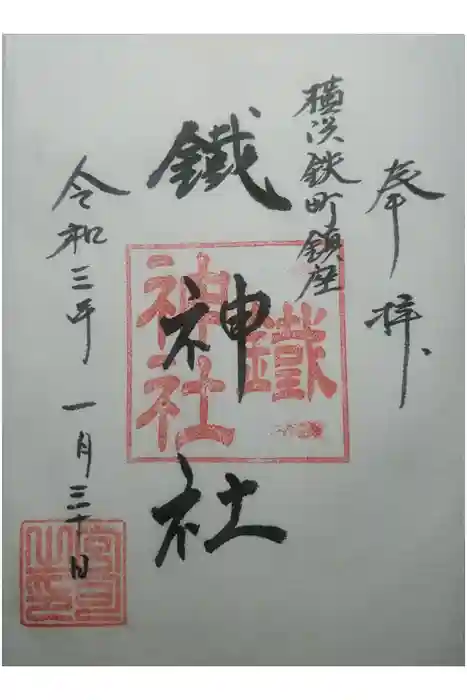 奉拝
横浜鉄町鎮座
鐵神社
鐵
神社
令和三年一月三十日
宮司之印